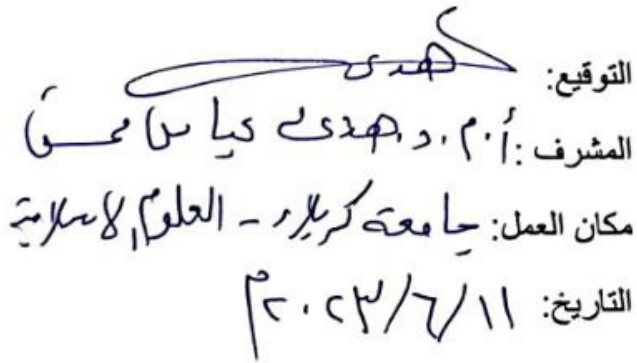 التوقيع: هدى
المشرف: أ.م.د. هدى عباس محسن
مكان العمل: جامعة كربلاء - العلوم الاسلامية
التاريخ: ١١/٦/٢٠٢٣م